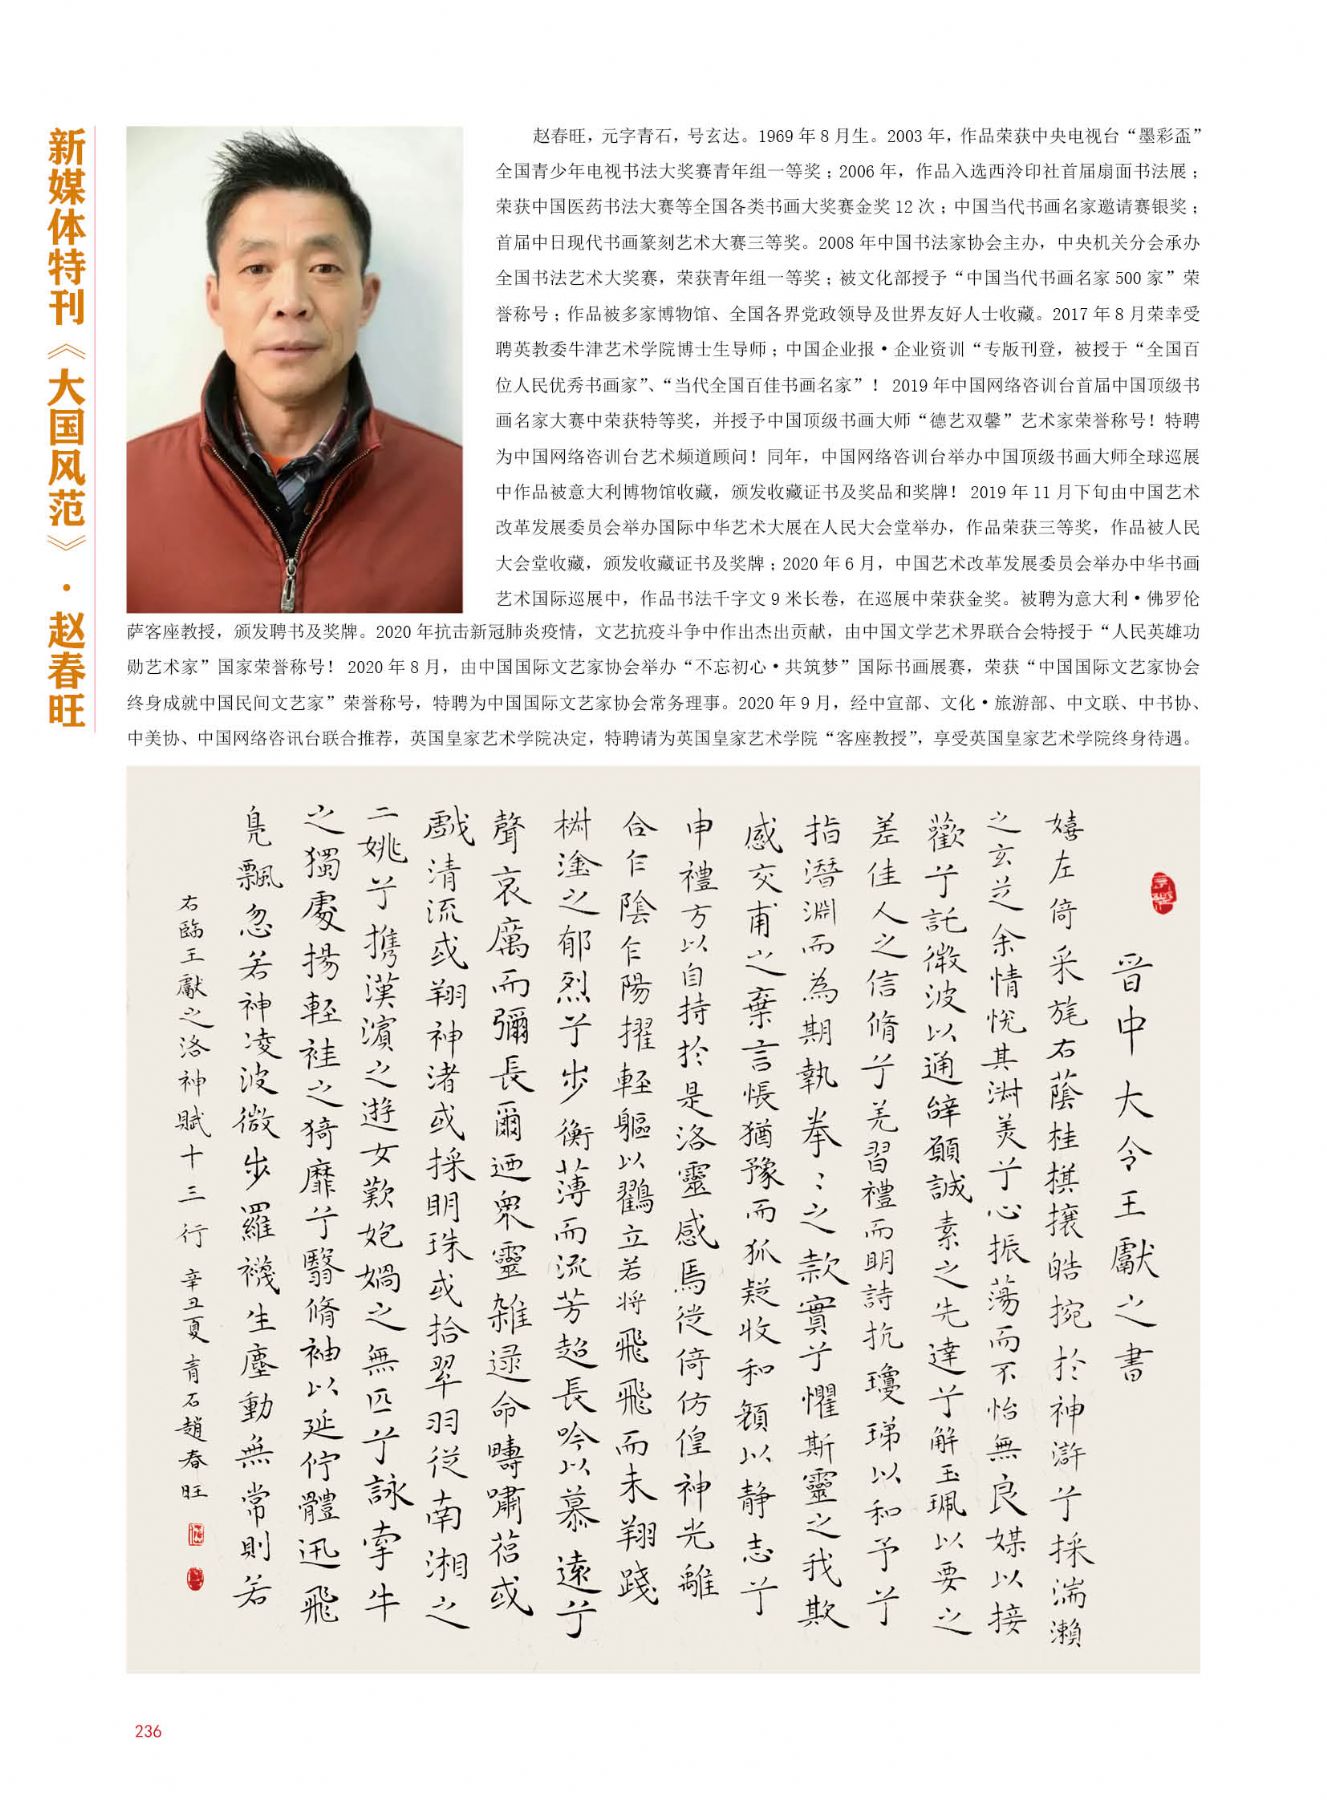 新媒体特刊《大国风范》·赵春旺
赵春旺，元字青石，号玄达。1969年8月生。2003年，作品荣获中央电视台“墨彩盃”
全国青少年电视书法大奖赛青年组一等奖；2006年，作品入选西泠印社首届扇面书法展；
荣获中国医药书法大赛等全国各类书画大奖赛金奖12次；中国当代书画名家邀请赛银奖；
首届中日现代书画篆刻艺术大赛三等奖。2008年中国书法家协会主办，中央机关分会承办
全国书法艺术大奖赛，荣获青年组一等奖；被文化部授予“中国当代书画名家500家”荣
誉称号；作品被多家博物馆、全国各界党政领导及世界友好人士收藏。2017年8月荣幸受
聘英教委牛津艺术学院博士生导师；中国企业报·企业资训“专版刊登，被授于“全国百
位人民优秀书画家”、“当代全国百佳书画名家”！2019年中国网络咨训台首届中国顶级书
画名家大赛中荣获特等奖，并授予中国顶级书画大师“德艺双馨”艺术家荣誉称号！特聘
为中国网络咨训台艺术频道顾问！同年，中国网络咨训台举办中国顶级书画大师全球巡展
中作品被意大利博物馆收藏，颁发收藏证书及奖品和奖牌！2019年11月下旬由中国艺术
改革发展委员会举办国际中华艺术大展在人民大会堂举办，作品荣获三等奖，作品被人民
大会堂收藏，颁发收藏证书及奖牌；2020年6月，中国艺术改革发展委员会举办中华书画
艺术国际巡展中，作品书法千字文9米长卷，在巡展中荣获金奖。被聘为意大利·佛罗伦
萨客座教授，颁发聘书及奖牌。2020年抗击新冠肺炎疫情，文艺抗疫斗争中作出杰出贡献，由中国文学艺术界联合会特授于“人民英雄功
勋艺术家”国家荣誉称号！2020年8月，由中国国际文艺家协会举办“不忘初心·共筑梦”国际书画展赛，荣获“中国国际文艺家协会
终身成就中国民间文艺家”荣誉称号，特聘为中国国际文艺家协会常务理事。2020年9月，经中宣部、文化·旅游部、中文联、中书协、
中美协、中国网络咨讯台联合推荐，英国皇家艺术学院决定，特聘请为英国皇家艺术学院“客座教授”，享受英国皇家艺术学院终身待遇。
晉中大令王獻之書
嬉左倚采旄右蔭桂棋攘皓捥扵神滸兮採湍瀨
之玄芝余情恱其淑美兮心振蕩而不怡無良媒以接
歡兮託微波以通辝願誠素之先達兮解玉珮以要之
差佳人之信脩兮羌習禮而明詩抗瓊珶以和予兮
指潛淵而為期執拳〻之款實兮懼斯靈之我欺
感交甫之棄言悵猶豫而狐疑收和顏以静志兮
申禮方以自持扵是洛靈感焉徙倚仿偟神光離
合乍陰乍陽擢輕軀以鶴立若将飛飛而未翔踐
椒塗之郁烈兮步衡薄而流芳超長吟以慕遠兮
聲哀厲而彌長爾迺衆靈雑遝命疇嘯侣或
戲清流或翔神渚或採明珠或拾翠羽従南湘之
二姚兮携漢濱之遊女歎匏媧之無匹兮詠牽牛
之獨處揚輕袿之猗靡兮翳脩袖以延佇體迅飛
鳧飄忽若神凌波微步羅襪生塵動無常則若
右臨王獻之洛神賦十三行 辛丑夏青石趙春旺
236